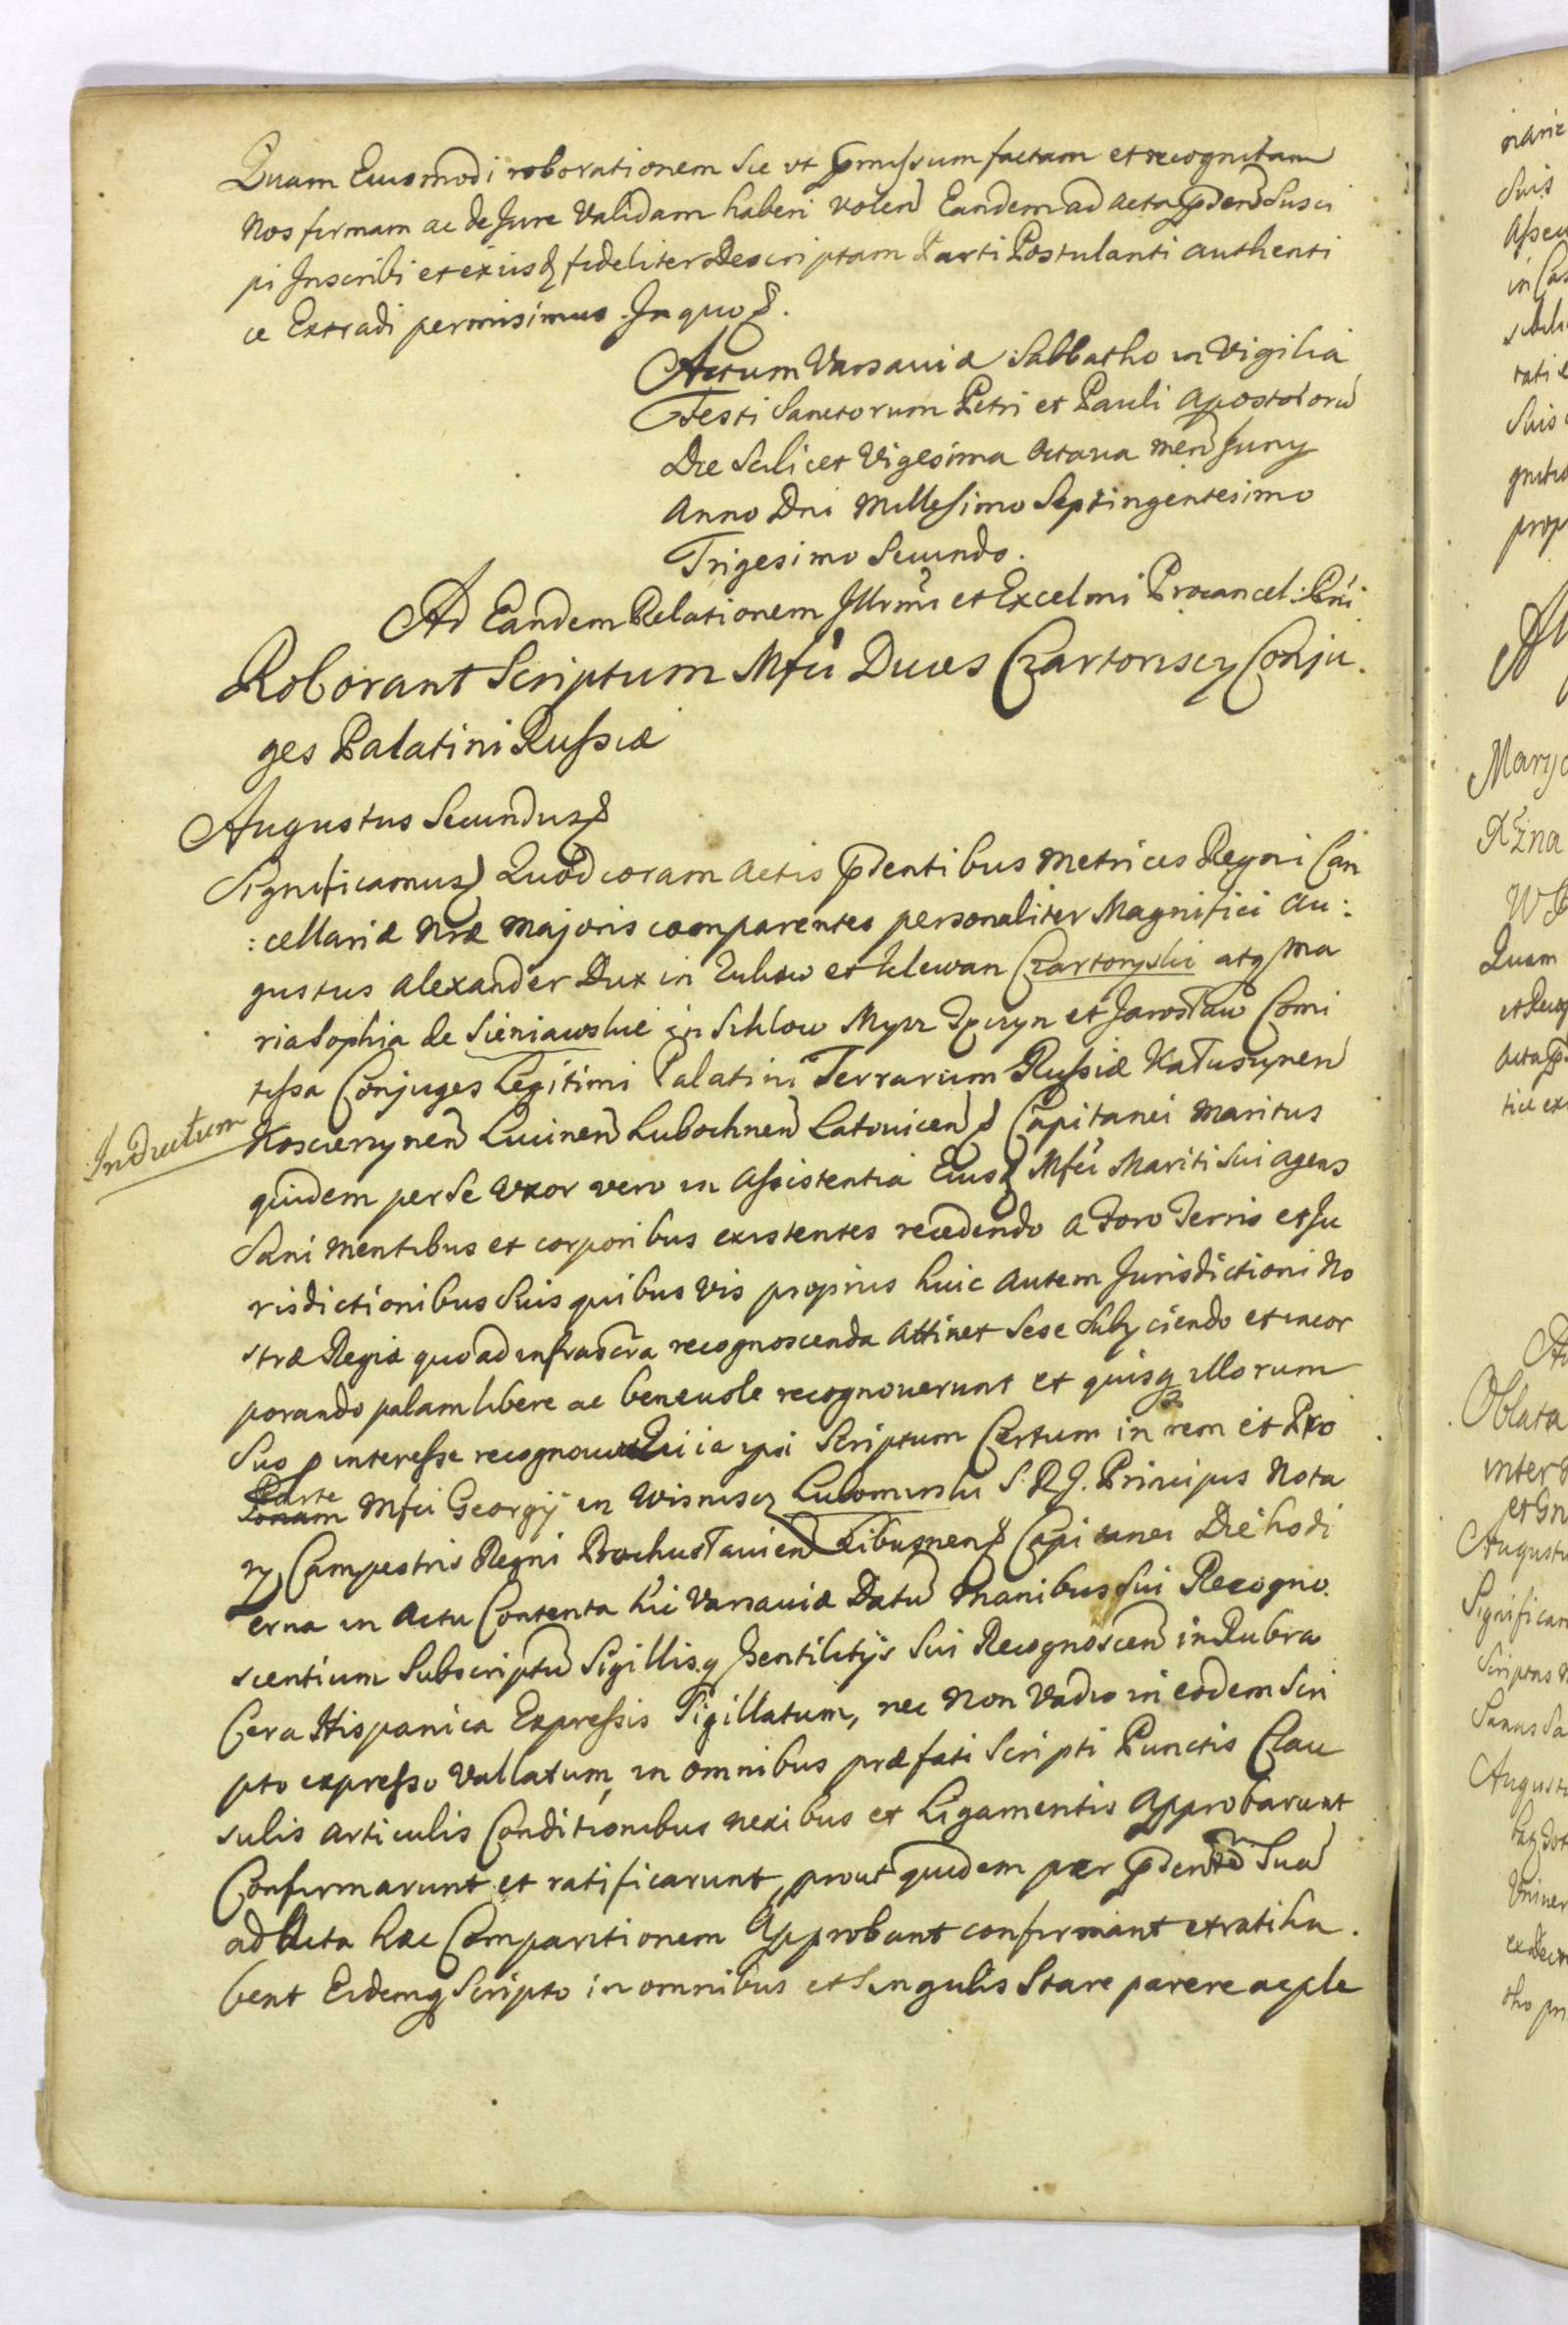 Quam Eiusmodi roborationem Sic ut p̃missum factam et recognitam
Nos firmam ac de Jure Validam haberi volen̄ Eandem ad acta p̃den̄ Susci
pi Inscribi et ex iisq fideliter Descriptam Parti Postulanti authenti
ce Extradi permisimus. In quo &.
Actum Varsaviæ Sabbatho in Vigilia
Festi Sanctorum Petri et Pauli Apostolorū
Die Scilicet Vigesima Octava men̄ Juny
Anno Dni Millesimo Septingentesimo
Trigesimo Secundo.
Ad Eandem Relationem Illrmi et Excelmi Procancel: Rni
Roborant Scriptum Mfci Duces Czartoriscy Conju.
ges Palatini Russiæ
Augustus Secundus &
Significamus & Quod coram Actis p̃dentibus Metrices Regni Can
:cellariæ Nræ Majoris comparentes personaliter Magnifici Au:
gustus Alexander Dux in Zukow et Klewan Czartoryski atq Ma
ria Sophia de Sieniawskie in Schlow Mysz et Jarosław Comi
tissa Conjuges Legitimi Palatini Terrarum Russiæ Kałuszynen̄
Indutum
Koscierzynen̄ Lucinen̄ Lubochnen̄ Latovicen̄ & Capitanei Maritus
quidem per Se Uxor vero in Assistentia Eiusq Mfci Mariti Sui agens
Sani Mentibus et corporibus existentes recedendo a Foro Terris et Ju
risdictionibus Suis quibus Vis proprius huic autem Jurisdictioni No
stræ Regiæ quo ad infrascra recognoscenda Attinet Sese Subjiciendo et incor
porando palam libere ac benevole recognoverunt et quisq illorum
Suo p interesse recognovit Quia ipsi Scriptum Certum in rem et Pro
Parte Mfci Georgij in Wisnisz Lubomirski S. R. J. Principis Nota
ry Campestris Regni Bochustavien̄ Libusnen̄ & Capitanei Die hodi
erna in Actu Contenta hic Varsaviæ Datū Manibus Sui Recogno.
scentium Subscriptū Sigillisq Gentilitijs Sui Recognoscen̄ in Rubra
Cera Hispanica Expressis Sigillatum, nec Non Vadio in eodem Scri
pto expresso Vallatum, in omnibus præfati Scripti Punctis Clau
sulis Articulis Conditionibus Nexibus et Ligamentis Approbarunt
Confirmarunt et ratificarunt, prout quidem per p̃dentē Suā
ad Acta hæc Comparitionem Approbant confirmant et ratiha.
bent Eidemq Scripto in omnibus et Singulis Stare parere ac ple